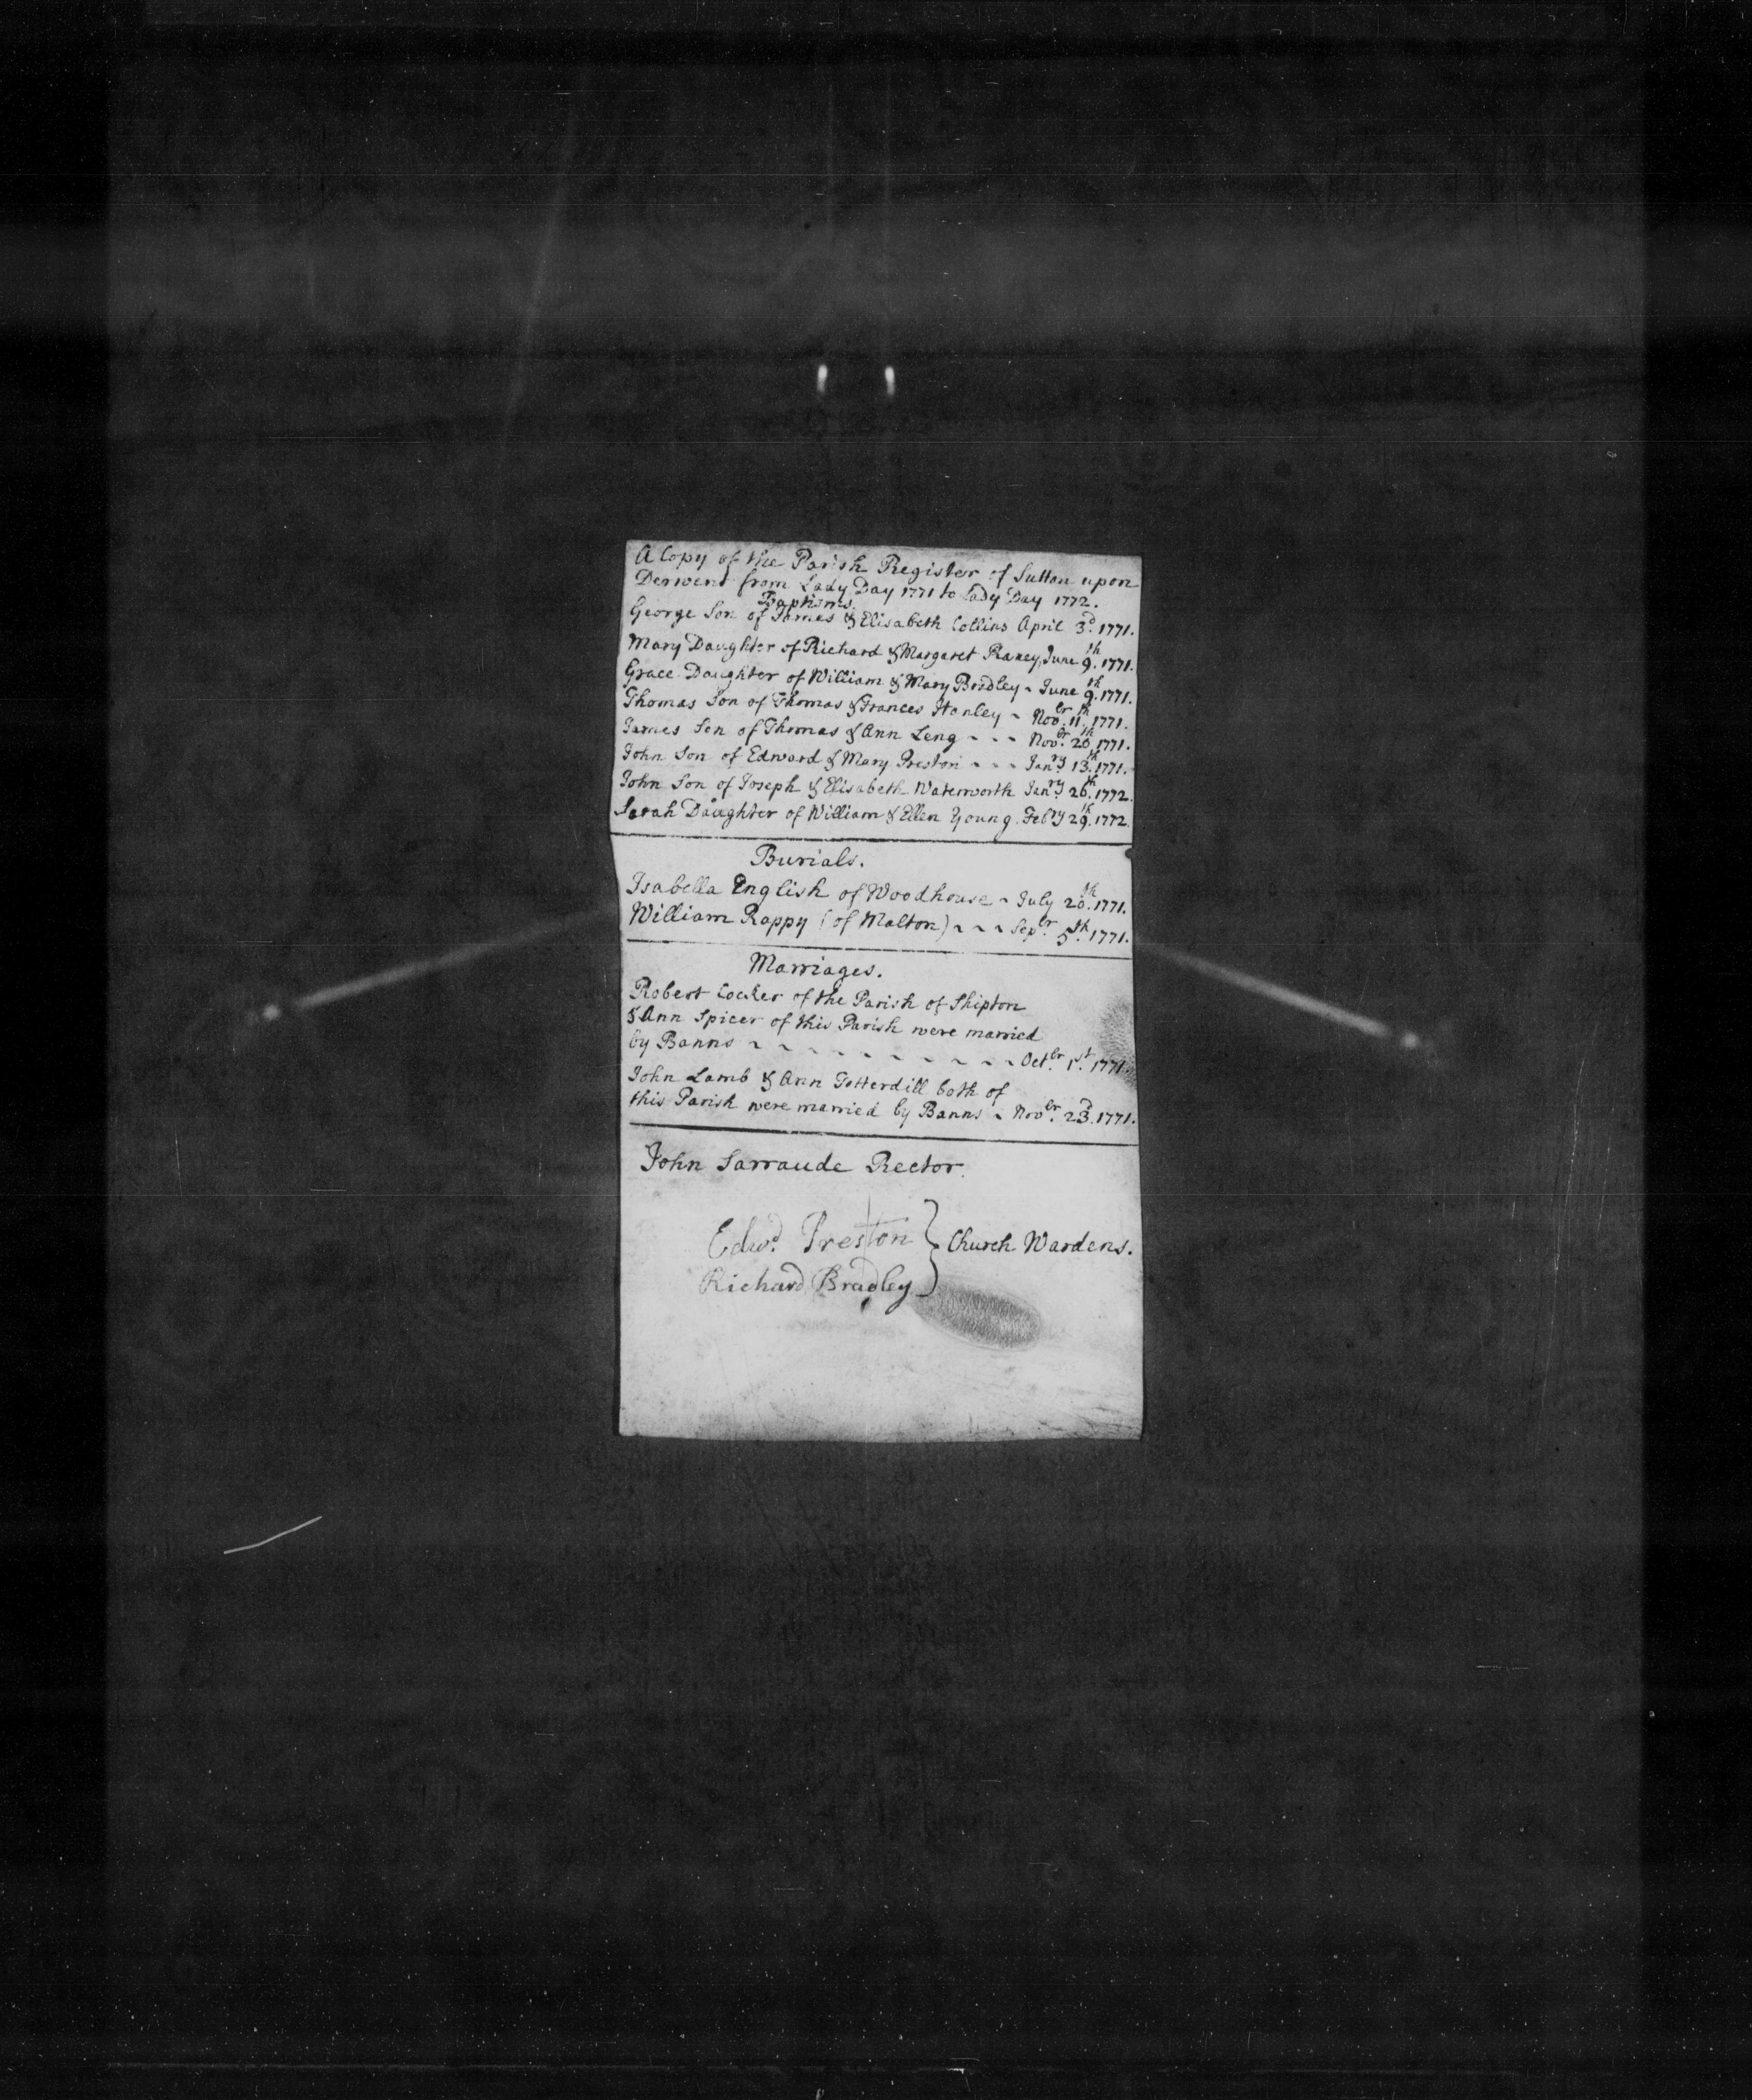 A Copy of the Parish Register of Sutton upon
Derwent from Lady Day 1771 to Lady Day 1772.
Baptisms.
George Son of James & Elisabeth Collins April 3d. 1771.
Mary Daughter of Richard & Margaret Raney, June 9th. 1771.
Grace Daughter of William & Mary Bradley ~ June 9th. 1771.
Thomas Son of Thomas & Frances Hanley ~ Novbr. 11th. 1771.
James Son of Thomas & Ann Leng ~ ~ ~ Novbr. 20th. 1771.
John Son of Edward & Mary Preston ~ ~ ~ Janry 13th. 1771.
John Son of Joseph & Elisabeth Waterworth Janry 26th. 1772.
Sarah Daughter of William & Ellen Young. Febry 29th. 1772.
Burials.
Isabella English of Woodhouse ~ July 20th. 1771.
William Rappy (of Malton) ~ ~ ~ Sepbr. 5th. 1771.
Marriages.
Robert Cocker of the Parish of Shipton
& Ann Spicer of this Parish were married
by Banns ~ ~ ~ ~ ~ ~ ~ ~ ~ ~ Octbr. 1st. 1771.
John Lamb & Ann Totterdill both of
this Parish were married by Banns ~ Novbr. 23d. 1771.
John Sarraude Rector.
Edwd. Preston } Church Wardens.
Richard Bradley